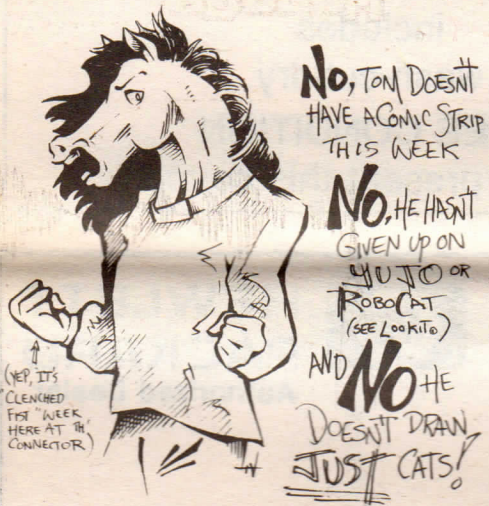 NO, TOM DOESN'T
HAVE A COMIC STRIP
THIS WEEK
NO, HE HASN'T
GIVEN UP ON
YUJO OR
ROBOCAT
(SEE LOOKIT®)
AND NO HE
DOESN'T DRAW
JUST CATS!
(YEP, IT'S
CLENCHED
FIST "WEEK
HERE AT TH'
CONNECTOR)